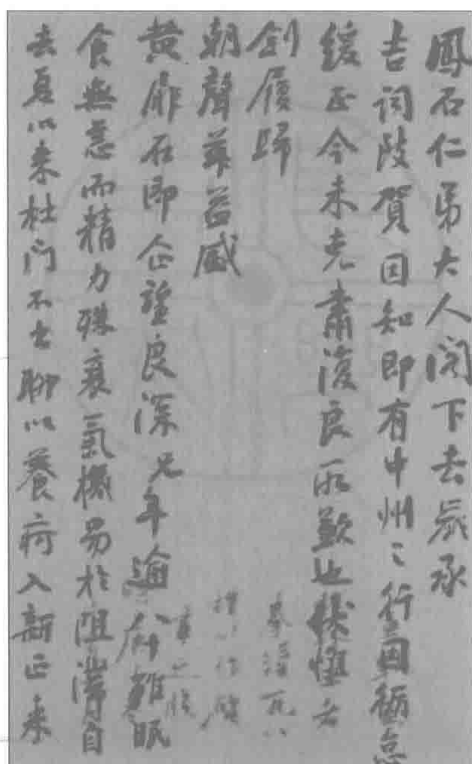 鳳石仁弟大人閣下去歲承
吉詞致賀因知即有中州之行因循怠
緩至今未克肅復良所歉也
劍履歸
朝聲華益盛
黃扉在即企望良深兄年逾 雖眠
食無恙而精力殊衰氣機易於阻滯自
去夏以來杜門不出聊以養疴入新正來